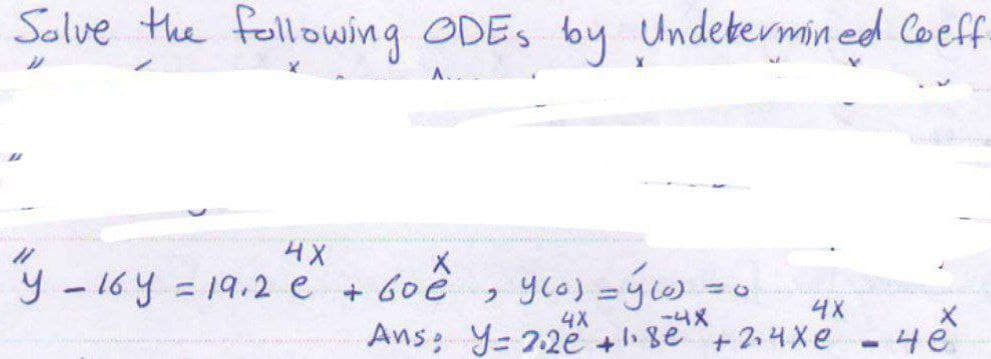 Solve the following ODEs by Undetermined Coeff.
y″ - 16y = 19.2 e^{4x} + 60e^{x} , y(0) = y′(0) = 0
Ans: y = 2.2e^{4x} + 1.8e^{-4x} + 2.4xe^{4x} - 4e^{x}